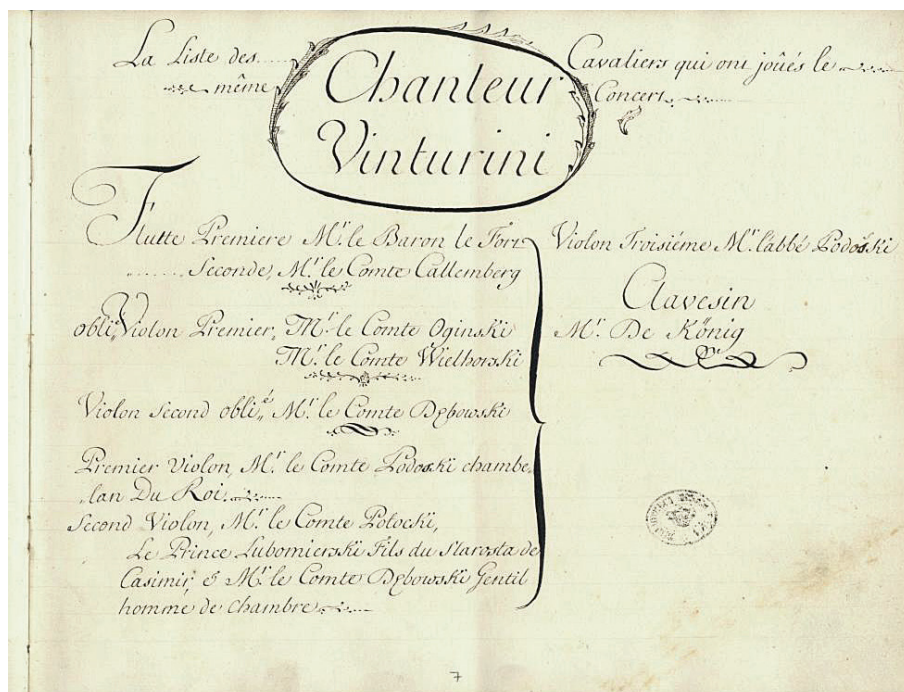 La Liste des
même
Chanteur
Vinturini
Cavaliers qui ont joûés le
Concert.
Flutte Premiere Mr. le Baron le Fort
Seconde, Mr. le Comte Callemberg
obli: Violon Premier, Mr. le Comte Oginski
Mr. le Comte Wielhorski
Violon Second oblié, Mr. le Comte Dębowski
Premier Violon, Mr. le Comte Podoski chambe,
,lan Du Roi.
Second Violon, Mr. le Comte Potocki,
Le Prince Lubomierski Fils du Starosta de
Casimir, & Mr. le Comte Dębowski Gentil
homme de chambre.
Violon Troisiéme Mr. l'abbé Podoski
Clavesin
Mr. De König
7